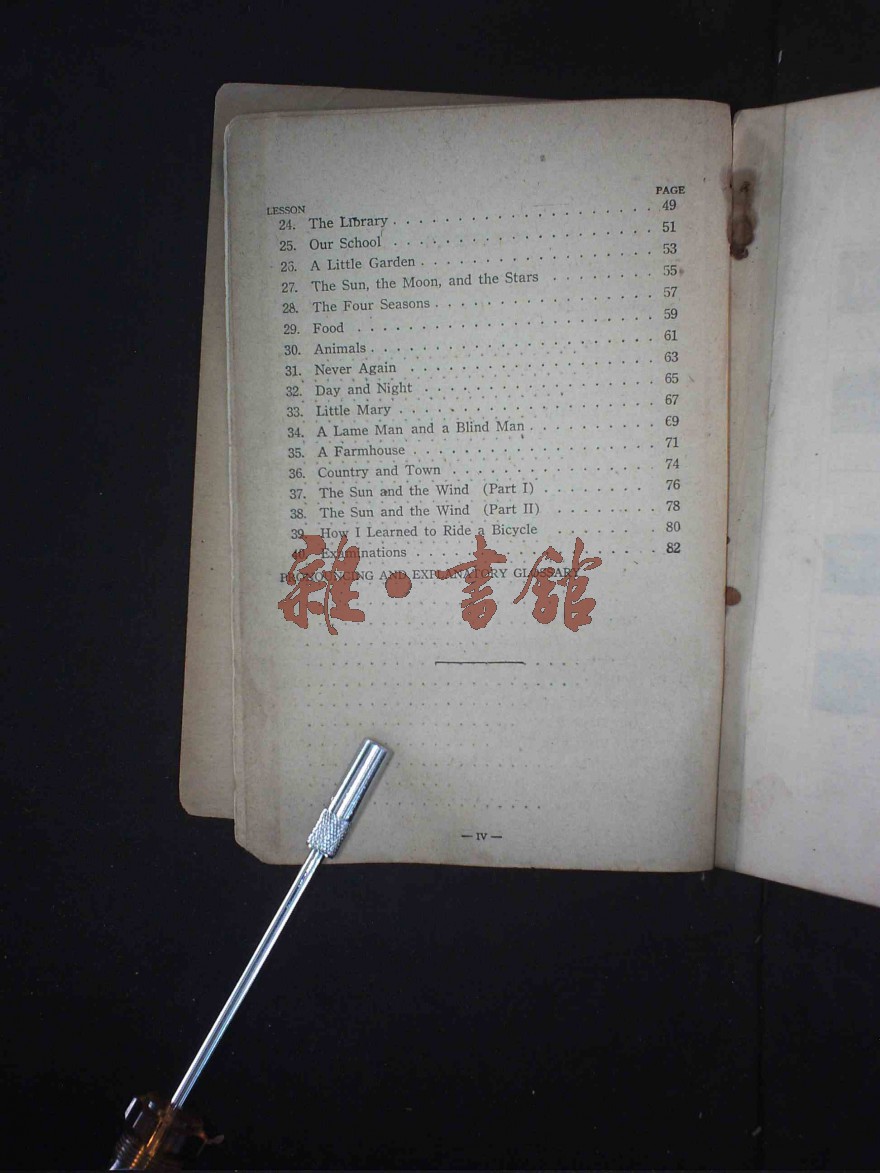 PAGE
LESSON
24. The Library . . . . . . . . . . . . . . . . . . . . 49
25. Our School . . . . . . . . . . . . . . . . . . . . 51
26. A Little Garden . . . . . . . . . . . . . . . . . . 53
27. The Sun, the Moon, and the Stars . . . . . . . . . 55
28. The Four Seasons . . . . . . . . . . . . . . . . . 57
29. Food . . . . . . . . . . . . . . . . . . . . . . . 59
30. Animals . . . . . . . . . . . . . . . . . . . . . . 61
31. Never Again . . . . . . . . . . . . . . . . . . . 63
32. Day and Night . . . . . . . . . . . . . . . . . . 65
33. Little Mary . . . . . . . . . . . . . . . . . . . . 67
34. A Lame Man and a Blind Man . . . . . . . . . . 69
35. A Farmhouse . . . . . . . . . . . . . . . . . . . 71
36. Country and Town . . . . . . . . . . . . . . . . 74
37. The Sun and the Wind (Part I) . . . . . . . . . 76
38. The Sun and the Wind (Part II) . . . . . . . . . 78
39. How I Learned to Ride a Bicycle . . . . . . . . . 80
40. Examinations . . . . . . . . . . . . . . . . . . . 82
PRONOUNCING AND EXPLANATORY GLOSSARY
雜·書館
— IV —